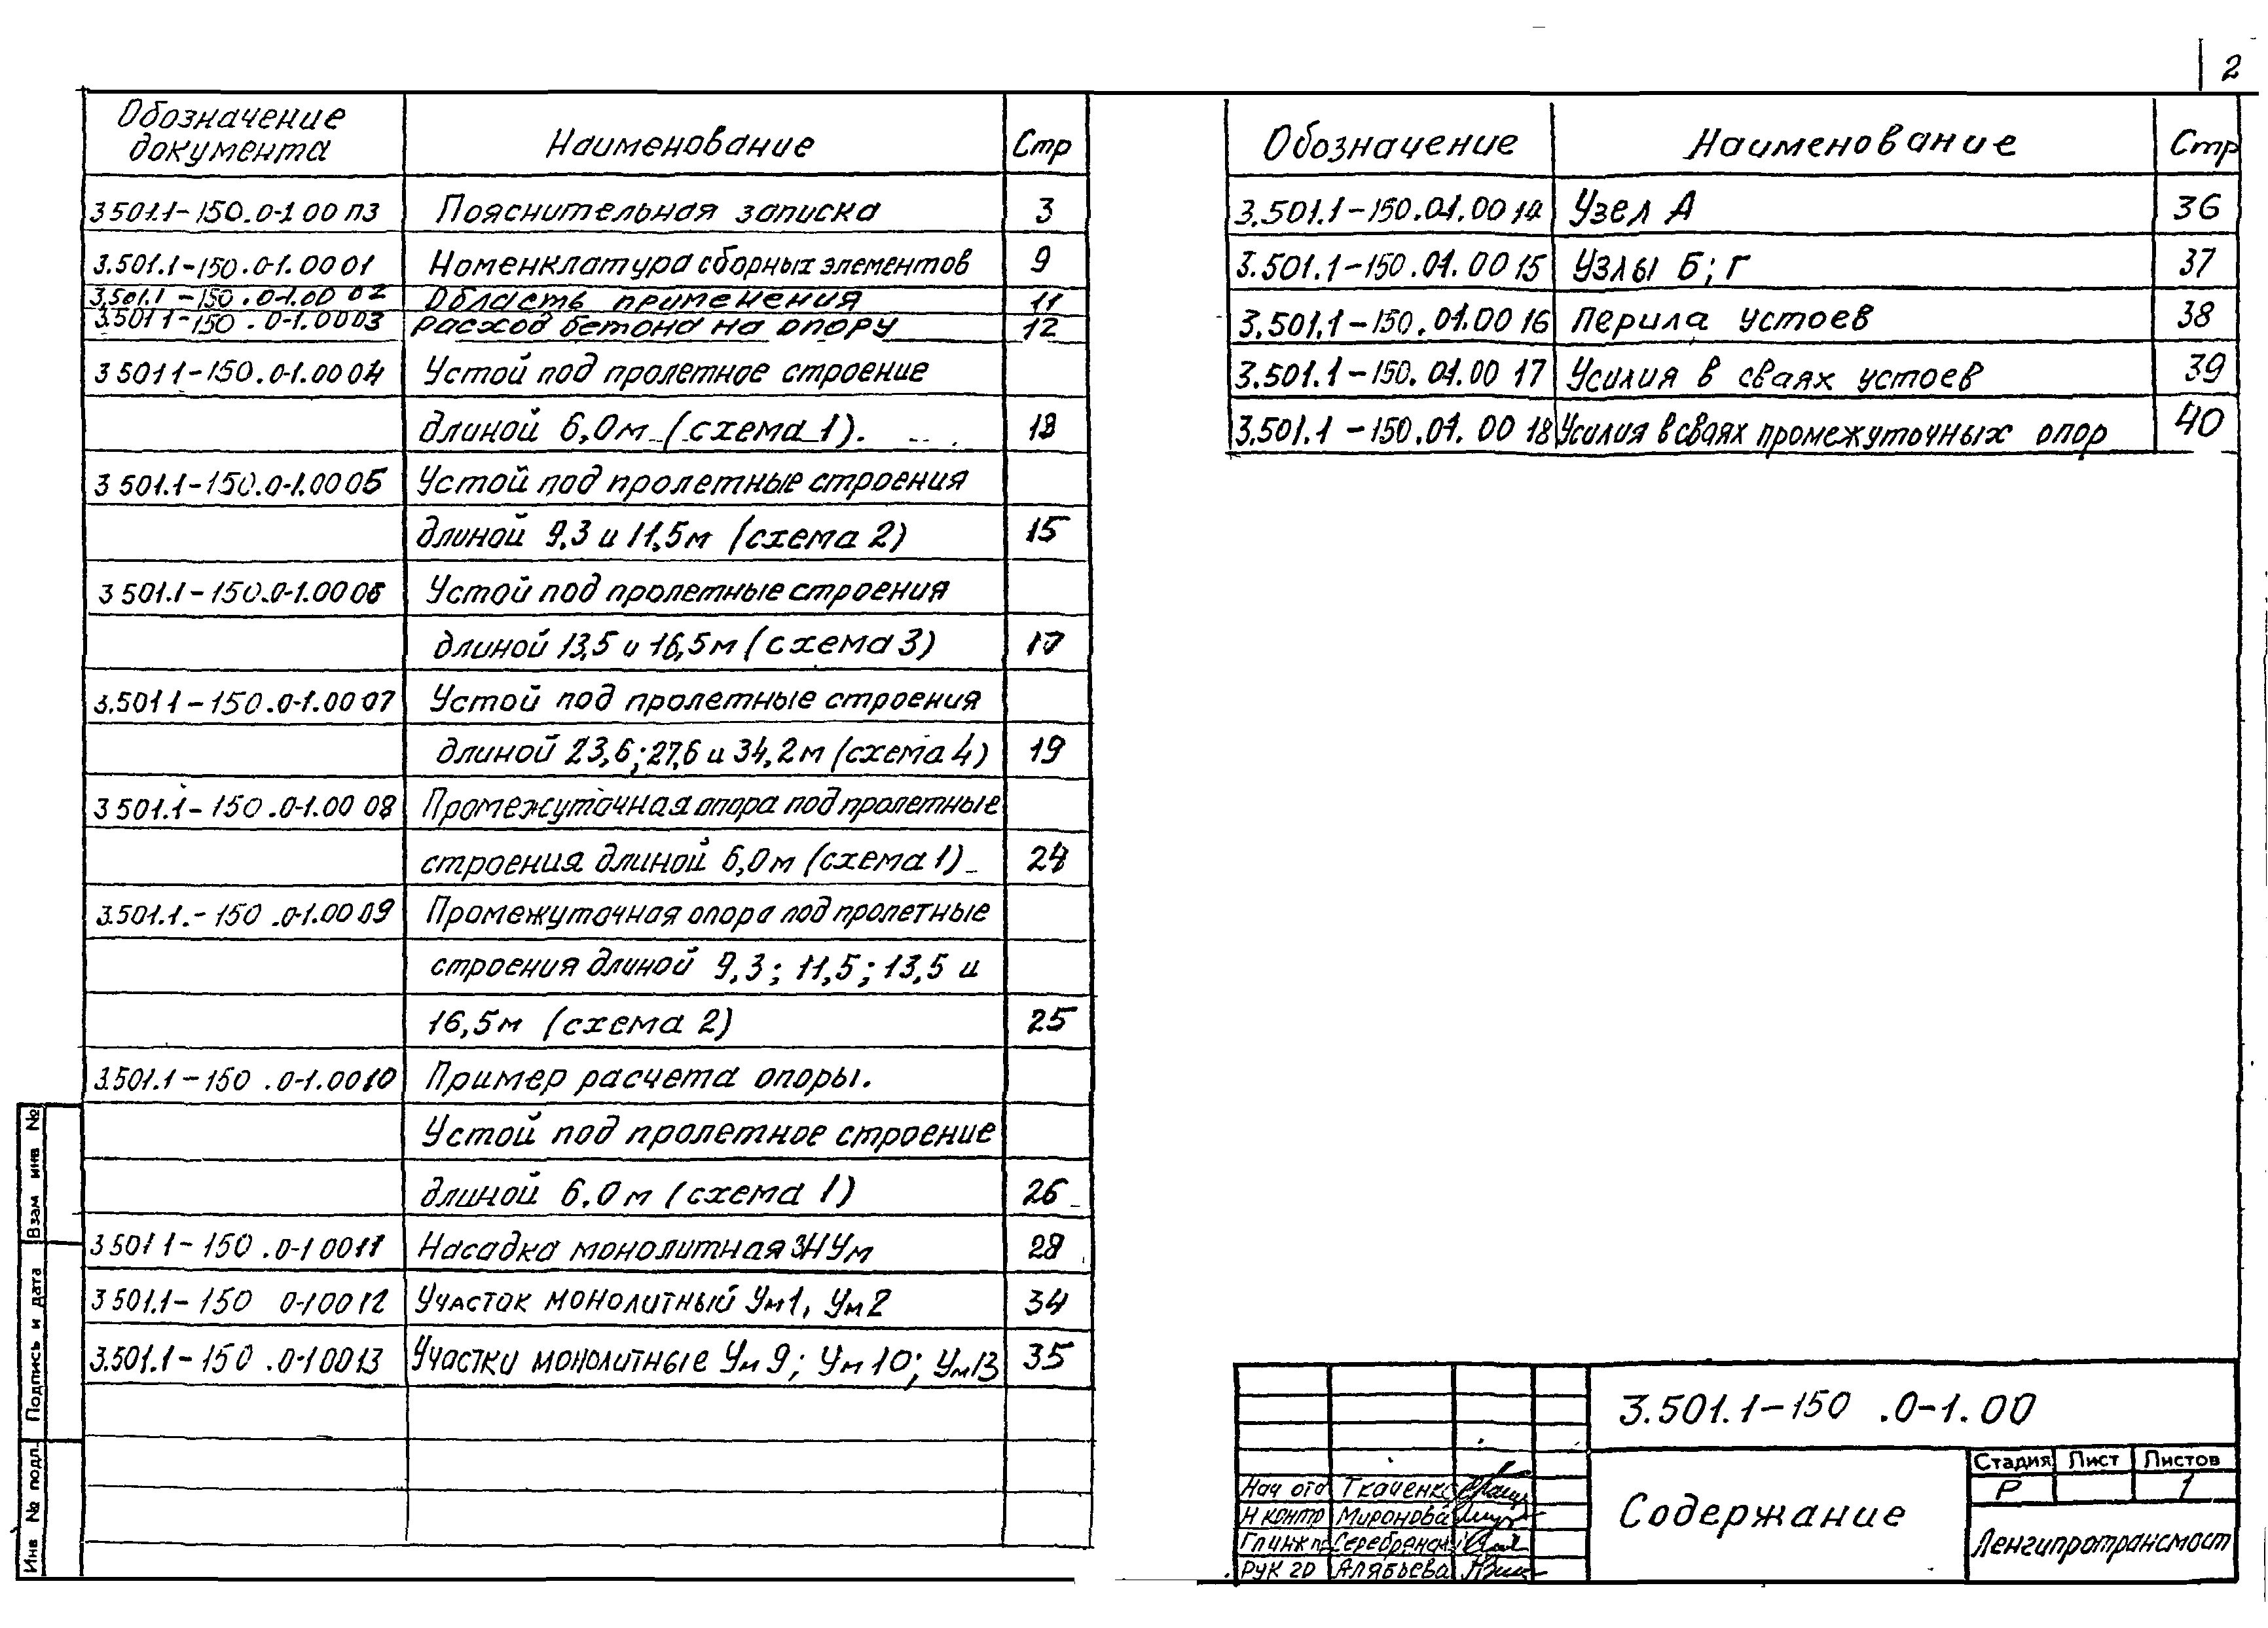 2
Обозначение документа Наименование Стр
3 501.1-150.0-1 00 ПЗ Пояснительная записка 3
3.501.1-150.0-1.00 01 Номенклатура сборных элементов 9
3.501.1-150.0-1.00 02 Область применения 11
3.501 1-150.0-1.00 03 Расход бетона на опору 12
3 501 1-150.0-1.00 04 Устой под пролетное строение
длиной 6,0м (схема 1). 13
3 501.1-150.0-1.00 05 Устой под пролетные строения
длиной 9,3 и 11,5м (схема 2) 15
3 501.1-150.0-1.00 06 Устой под пролетные строения
длиной 13,5 и 16,5м (схема 3) 17
3.501 1-150.0-1.00 07 Устой под пролетные строения
длиной 23,6; 27,6 и 34,2м (схема 4) 19
3 501.1-150.0-1.00 08 Промежуточная опора под пролетные
строения длиной 6,0м (схема 1) 24
3.501.1.-150.0-1.00 09 Промежуточная опора под пролетные
строения длиной 9,3; 11,5; 13,5 и
16,5м (схема 2) 25
3.501.1-150.0-1.00 10 Пример расчета опоры.
Устой под пролетное строение
длиной 6.0м (схема 1) 26
3 501 1-150.0-1 00 11 Насадка монолитная ЗНУм 28
3 501.1-150 0-1 00 12 Участок монолитный Ум1, Ум2 34
3.501.1-150.0-1 00 13 Участки монолитные Ум9; Ум10; Ум13 35
Обозначение Наименование Стр
3.501.1-150.01.00 14 Узел А 36
3.501.1-150.01.00 15 Узлы Б; Г 37
3.501.1-150.01.00 16 Перила устоев 38
3.501.1-150.01.00 17 Усилия в сваях устоев 39
3.501.1-150.01.00 18 Усилия в сваях промежуточных опор 40
3.501.1-150 .0-1.00
Содержание
Стадия Лист Листов
Р 1
Ленгипротрансмост
Нач отд Ткаченко
Н контр Миронова
Гл инж пр Серебрянский
Рук гр Алябьева
Инв № подл. Подпись и дата Взам инв №